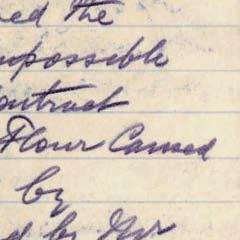 ed the
mpossible
ontract
Flour Caused
by
d by